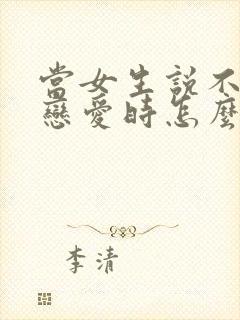 當女生説不
戀愛時怎麼
李清